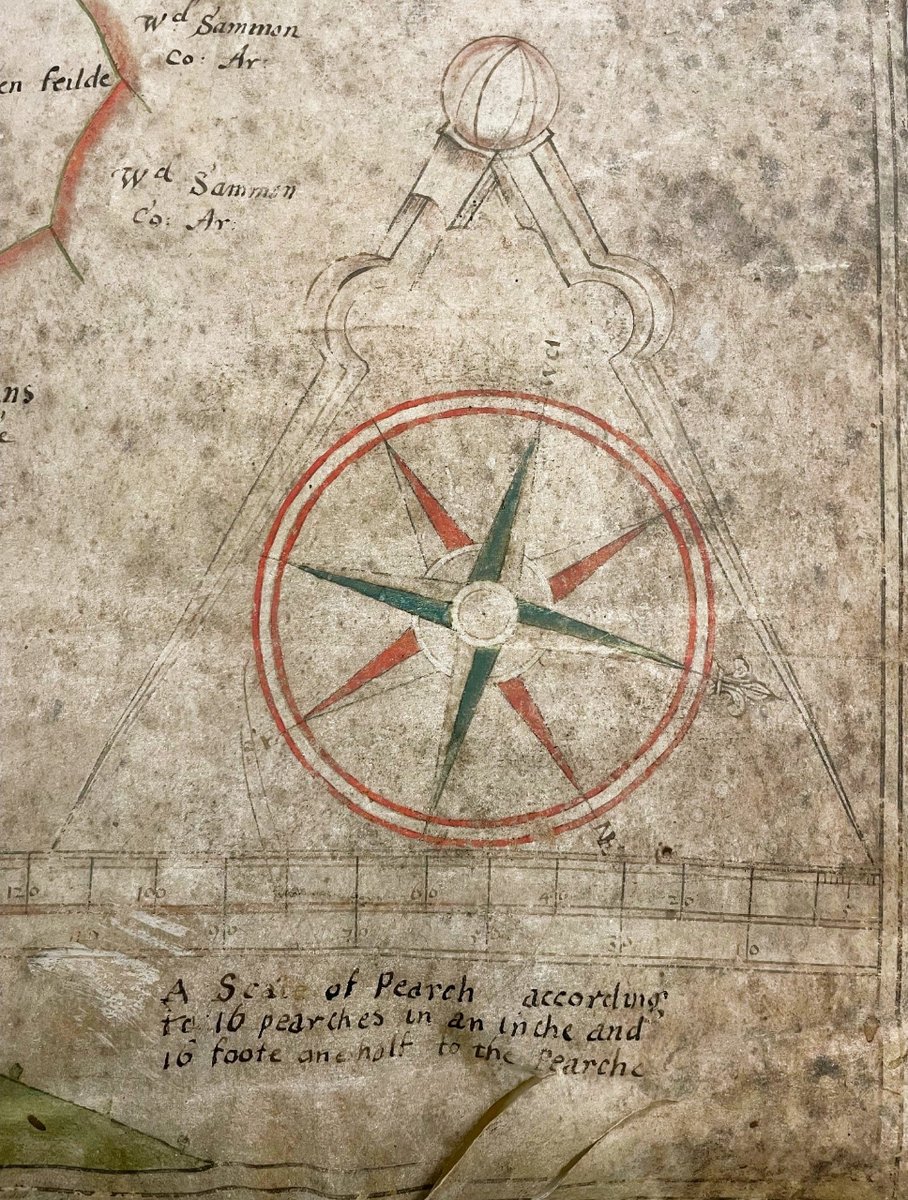 Wd Sammon
Co: Ar
en feilde
Wd Sammon
Co: Ar:
ns
NE
120 100 60 40 20
110 90 70 50 30 10
A Scale of Pearch according
to 16 pearches in an inche and
16 foote one halt to the Pearche